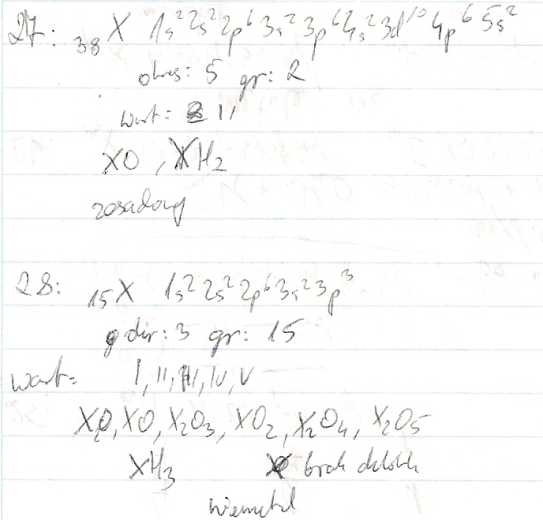 27: ₃₈X 1s²2s²2p⁶3s²3p⁶4s²3d¹⁰4p⁶5s²
okres: 5 gr: 2
wart= II
XO, XH₂
zasadowy
28: ₁₅X 1s²2s²2p⁶3s²3p³
gr: 15
wart= I, II, III, IV, V
X₂O, XO, X₂O₃, XO₂, X₂O₄, X₂O₅
XH₃ brak
niemetal